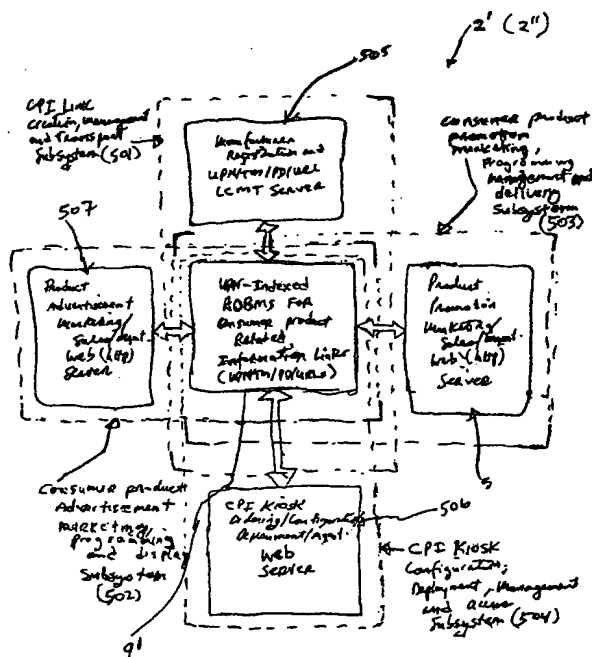 2' (2")
505
CPI Link
Creation, Management
and Transport
Subsystem (501)
Manufacturer
Registration and
UPN/TM/PD/URL
LCMT Server
Consumer product
promotion
marketing,
Programming
management and
delivery
Subsystem
(503)
507
Product
Advertisement
Marketing/
Sales/mgmt.
Web (http)
Server
UPN-Indexed
RDBMS FOR
Consumer product
Related
Information Links
(UPN/TM/PD/URLs)
Product
Promotion
Marketing/
Sales/mgmt.
Web (http)
Server
5
Consumer product
Advertisement
Marketing,
programming
and display
Subsystem
(502)
CPI Kiosk
Ordering/Configuration
Deployment/Mgmt.
Web
Server
506
CPI Kiosk
Configuration,
Deployment, Management
and access
Subsystem (504)
91